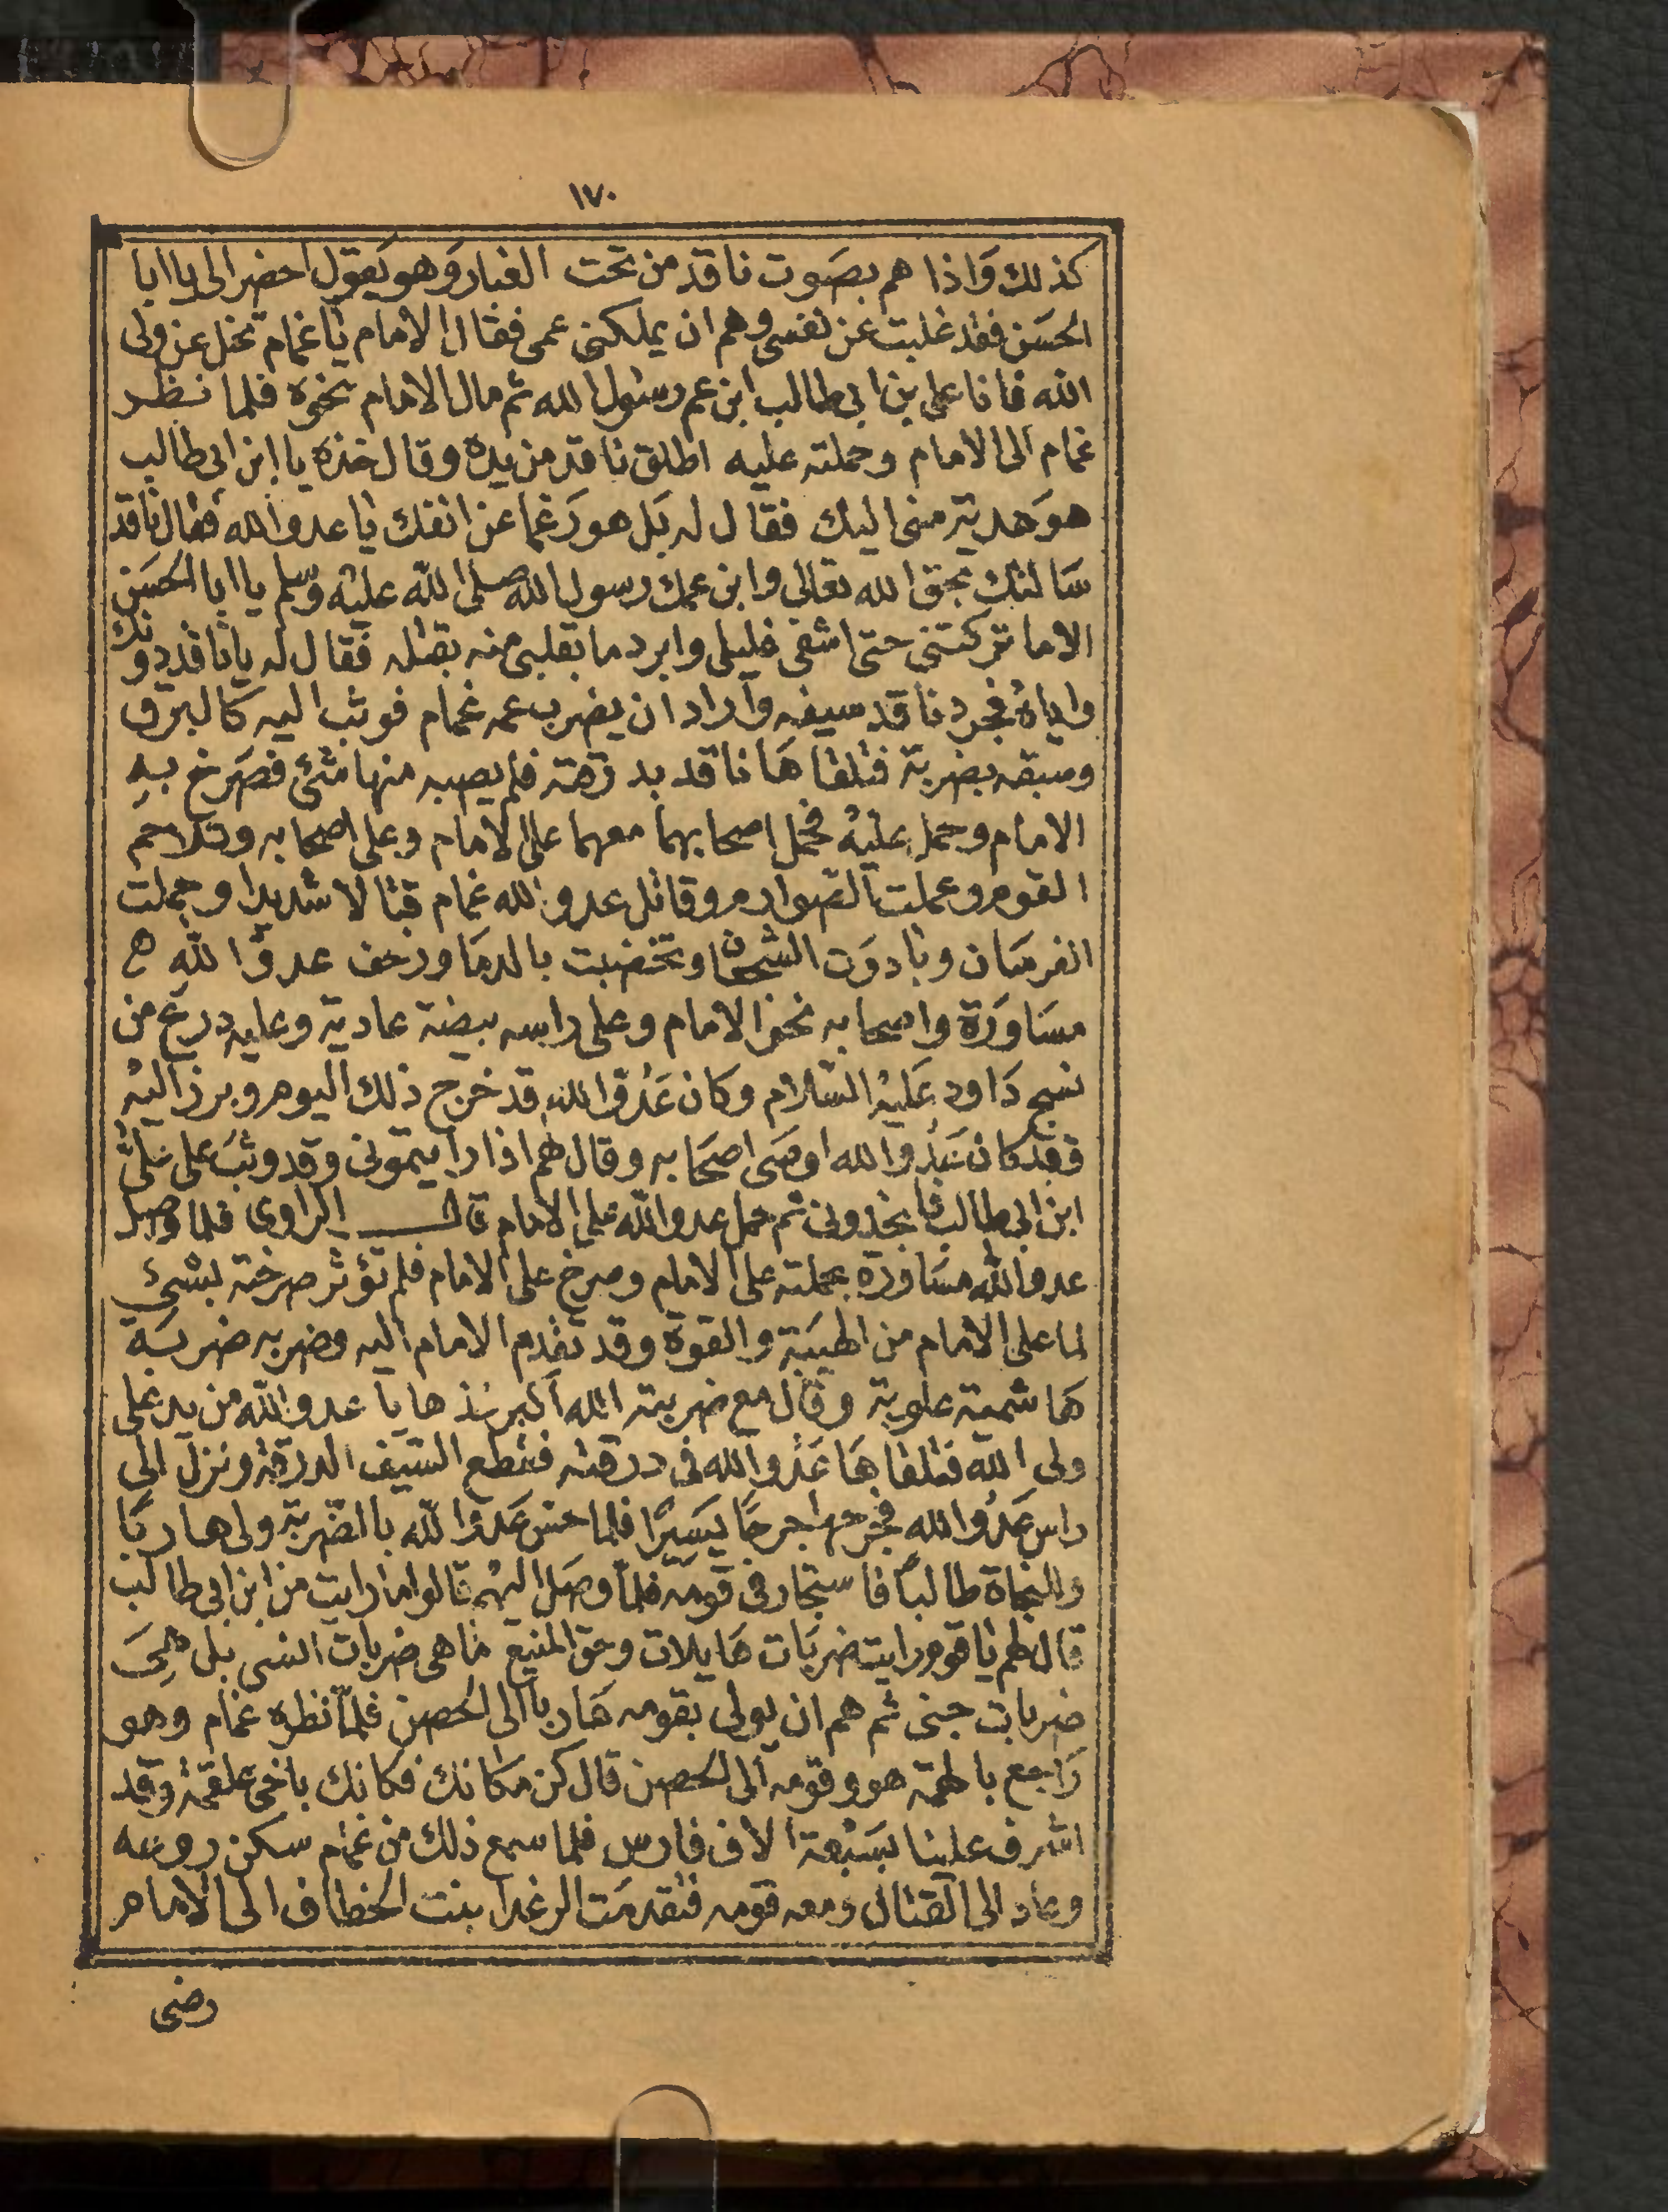 ١٧٠
كذلك وَاذا هم بصَوت ناقد من تحت الغبار وَهو يَقول احضر الى يا ابا
الحسَن فقد غلبت عن نفسى وهم ان يملكنى عمى فقال الامام يا غمام تخل عن ولى
الله فانا على بن ابى طالب ابن عم رسول الله ثم مال الامام نحوه فلما نظر
غمام الى الامام وحملته عليه اطلق ناقد من يده وقال خذه يا ابن ابى طالب
هوَ هدية منى اليك فقال له بَل هو رَغما عن انفك يا عدو الله فقال ناقد
سَالتك بحق الله تعالى وابن عمك رسول الله صلى الله عليه وسلم يا ابا الحسَن
الاما تركتنى حتى اشفى غليلى وابرد ما بقلبى منه بقتله فقال له يا ناقد دونك
واياهُ فجرد ناقد سيفه واراد ان يضرب عمه غمام فوثب اليه كالبرق
وسبقه بضربة فتلقاهَا ناقد بدرقته فلم يصبه منها شئ فصَرخ بهِ
الامام وحمل عليهُ فحمل اصحابهما معهما على الامام وعلى اصحابه وتلاحم
القوم وعملت الصوارم وقاتل عدو الله غمام قتالا شديدا وحملت
الفرسَان وبادرَت الشجعان وتخضبت بالدمَا وزحف عدوّ الله
مسَاوَرَة واصحابه نحو الامام وعلى راسه بيضة عادية وعليه درع من
نسج دَاود عَليْه السَّلام وكان عَدُوّ الله قد خرج ذلك اليوم وبرز اليهْ
فقد كان عَدُو الله اوصَى اصحَابه وقال لهم اذا رايتمونى وقد وثبَ على علىُّ
ابن ابى طالب فانجدونى ثم حمل عدو الله على الامام قال الراوى فلما وصل
عدو الله مسَاورَة بحملته على الامام وصرخ على الامام فلم تؤثر صرخته بشئ
لما على الامام من الهيبَة والقوة وقد تقدم الامام اليه وضربه ضربَة
هَاشمية علوية وقال مع ضربته الله اكبر خذها يا عدو الله من يد على
ولى الله فتلقاهَا عَدُو الله فى درقته فقطع السَيف الدرقة ونزل الى
راس عَدُو الله فجرحهَا جرحًا يَسيرًا فلما حس عَدوّ الله بالضّربة ولى هاربًا
وللنجاة طالبًا فاستجار فى قومه فلمّا وصَل اليهْم قالوا ما رايت من ابن ابى طالب
قال لهم يا قوم رايت ضربَات هَايلات وحق المنيع ما هى ضربات انسى بل هىَ
ضربات جنى ثم هم ان يولى بقومه هَاربا الى الحصن فلمّا نظره غمام وهو
رَاجع بالهمة هو وقومه الى الحصن قال كن مكانك فكانك باخى علقمة وقد
اشرف علينا بسَبْعة الاف فارس فلما سمع ذلك من غمام سكن روعه
وعاد الى القتال ومعه قومه فتقدمَت الرغدا بنت الخطاف الى الامام
رضى